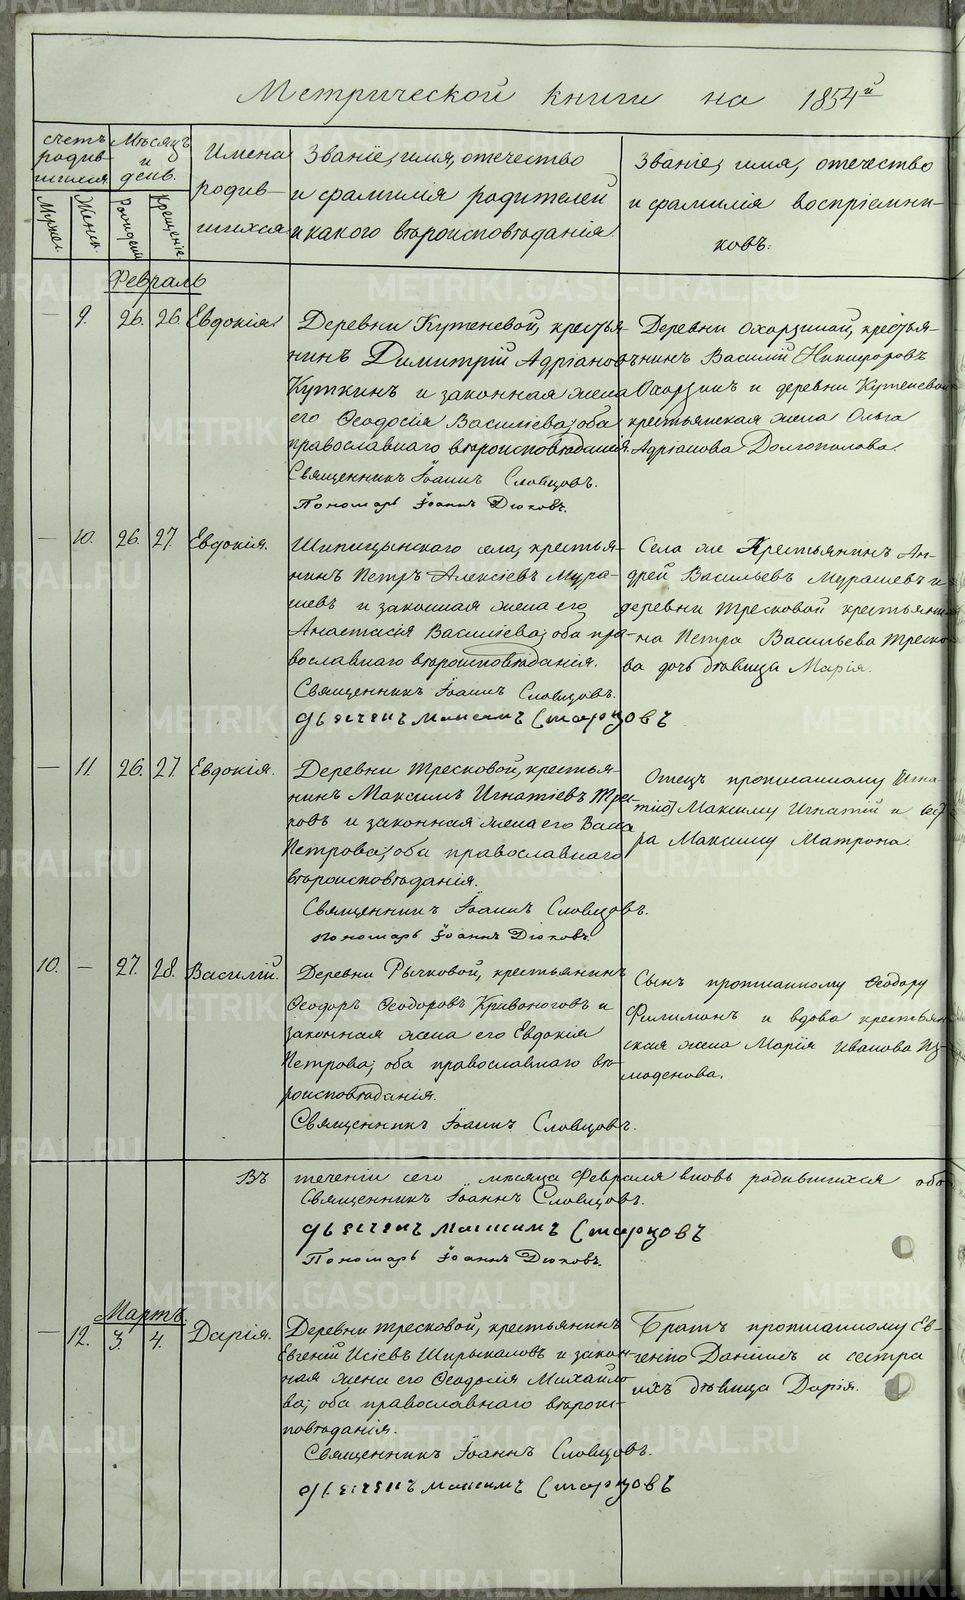 Метрической книги на 1854й
счетъ
родив-
шихся
Мужес.
Женс.
Мѣсяцъ
и
день.
Рожденiя
Крещенiя
Имена
родив-
шихся
Званiе, имя, отечество
и фамилiя родителей
и какого вѣроисповѣданiя
Званiе, имя, отечество
и фамилiя воспрiемни-
ковъ.
Февраль
— 9. 26. 26. Евдокiя
Деревни Кутеневой, крестья-
нинъ Димитрiй Адрiановъ
Куткинъ и законная жена
его Ѳеодосiя Василiева; оба
православнаго вѣроисповѣданiя.
Священникъ Iоаннъ Словцовъ.
Пономарь Iоаннъ Дюковъ.
Деревни Охорзиной, крестья-
нинъ Василiй Никифоровъ
Охорзинъ и деревни Кутеневой
крестьянская жена Ольга
Адрiанова Долгополова.
— 10. 26. 27. Евдокiя.
Шипицынскаго села, крестья-
нинъ Петръ Алексiевъ Мура-
шевъ и законная жена его
Анастасiя Василiева; оба пра-
вославнаго вѣроисповѣданiя.
Священникъ Iоаннъ Словцовъ.
Дьячекъ Максимъ Старцовъ
Села же Крестьянинъ Ан-
дрей Васильевъ Мурашевъ и
деревни Тресковой крестьяни-
на Петра Васильева Треско-
ва дочь дѣвица Марiя.
— 11. 26. 27. Евдокiя.
Деревни Тресковой, крестья-
нинъ Максимъ Игнатiевъ
и законная жена его Васса
Петрова; оба православнаго
вѣроисповѣданiя.
Священникъ Iоаннъ Словцовъ.
Пономарь Iоаннъ Дюковъ.
Отецъ прописанному
Максиму Игнатiй и сест-
ра Максиму Матрона.
10. — 27. 28. Василiй.
Деревни Рычковой, крестьянинъ
Ѳеодоръ Ѳеодоровъ Кривоноговъ и
законная жена его Евдокiя
Петрова; оба православнаго вѣ-
роисповѣданiя.
Священникъ Iоаннъ Словцовъ.
Сынъ прописанному Ѳеодору
Филимонъ и вдова крестьян-
ская жена Марiя Иванова Из-
моденова.
Въ теченiи сего мѣсяца Февраля вновь родившихся обо
Священникъ Iоаннъ Словцовъ.
Дьячекъ Максимъ Старцовъ
Пономарь Iоаннъ Дюковъ.
Мартъ.
— 12. 3. 4. Дарiя.
Деревни Тресковой, крестьянинъ
Евгенiй Исiевъ Ширыкаловъ и закон-
ная жена его Ѳеодосiя Михайло-
ва; оба православнаго вѣроис-
повѣданiя.
Священникъ Iоаннъ Словцовъ.
Дьячекъ Максимъ Старцовъ
Братъ прописанному Ев-
генiю Данiилъ и сестра
ихъ дѣвица Дарiя.
METRIKI.GASO-URAL.RU